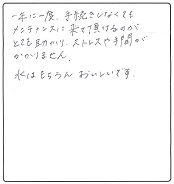 一年に一度、手続きしなくても
メンテナンスに来て頂けるのが
とても助かり、ストレスや手間が
かかりません。
水はもちろんおいしいです。